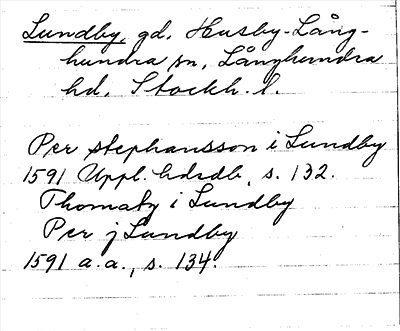 Lundby, gd. Husby-Lång-
hundra sn, Långhundra
hd. Stockh. l.
Per stephansson i Lundby
1591 Uppl. hdsdb, s. 132.
Thomas i Lundby
Per j Lundby
1591 a.a., s. 134.